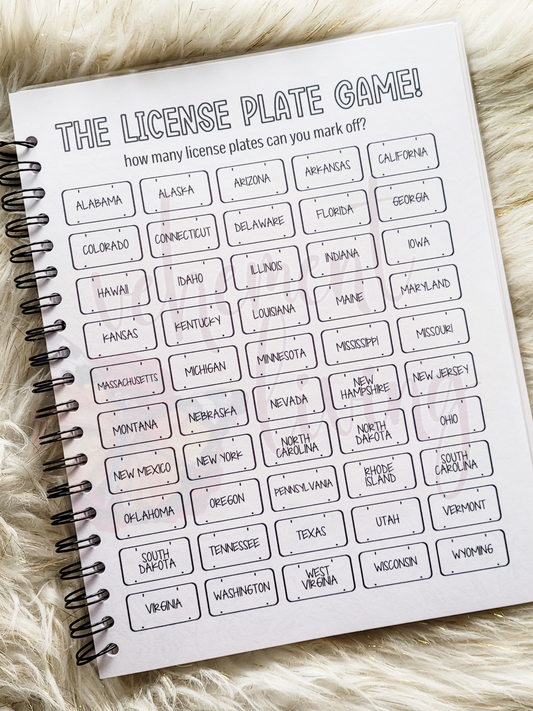 THE LICENSE PLATE GAME!
how many license plates can you mark off?
ALABAMA ALASKA ARIZONA ARKANSAS CALIFORNIA
COLORADO CONNECTICUT DELAWARE FLORIDA GEORGIA
HAWAII IDAHO ILLINOIS INDIANA IOWA
KANSAS KENTUCKY LOUISIANA MAINE MARYLAND
MASSACHUSETTS MICHIGAN MINNESOTA MISSISSIPPI MISSOURI
MONTANA NEBRASKA NEVADA NEW HAMPSHIRE NEW JERSEY
NEW MEXICO NEW YORK NORTH CAROLINA NORTH DAKOTA OHIO
OKLAHOMA OREGON PENNSYLVANIA RHODE ISLAND SOUTH CAROLINA
SOUTH DAKOTA TENNESSEE TEXAS UTAH VERMONT
VIRGINIA WASHINGTON WEST VIRGINIA WISCONSIN WYOMING
vehement